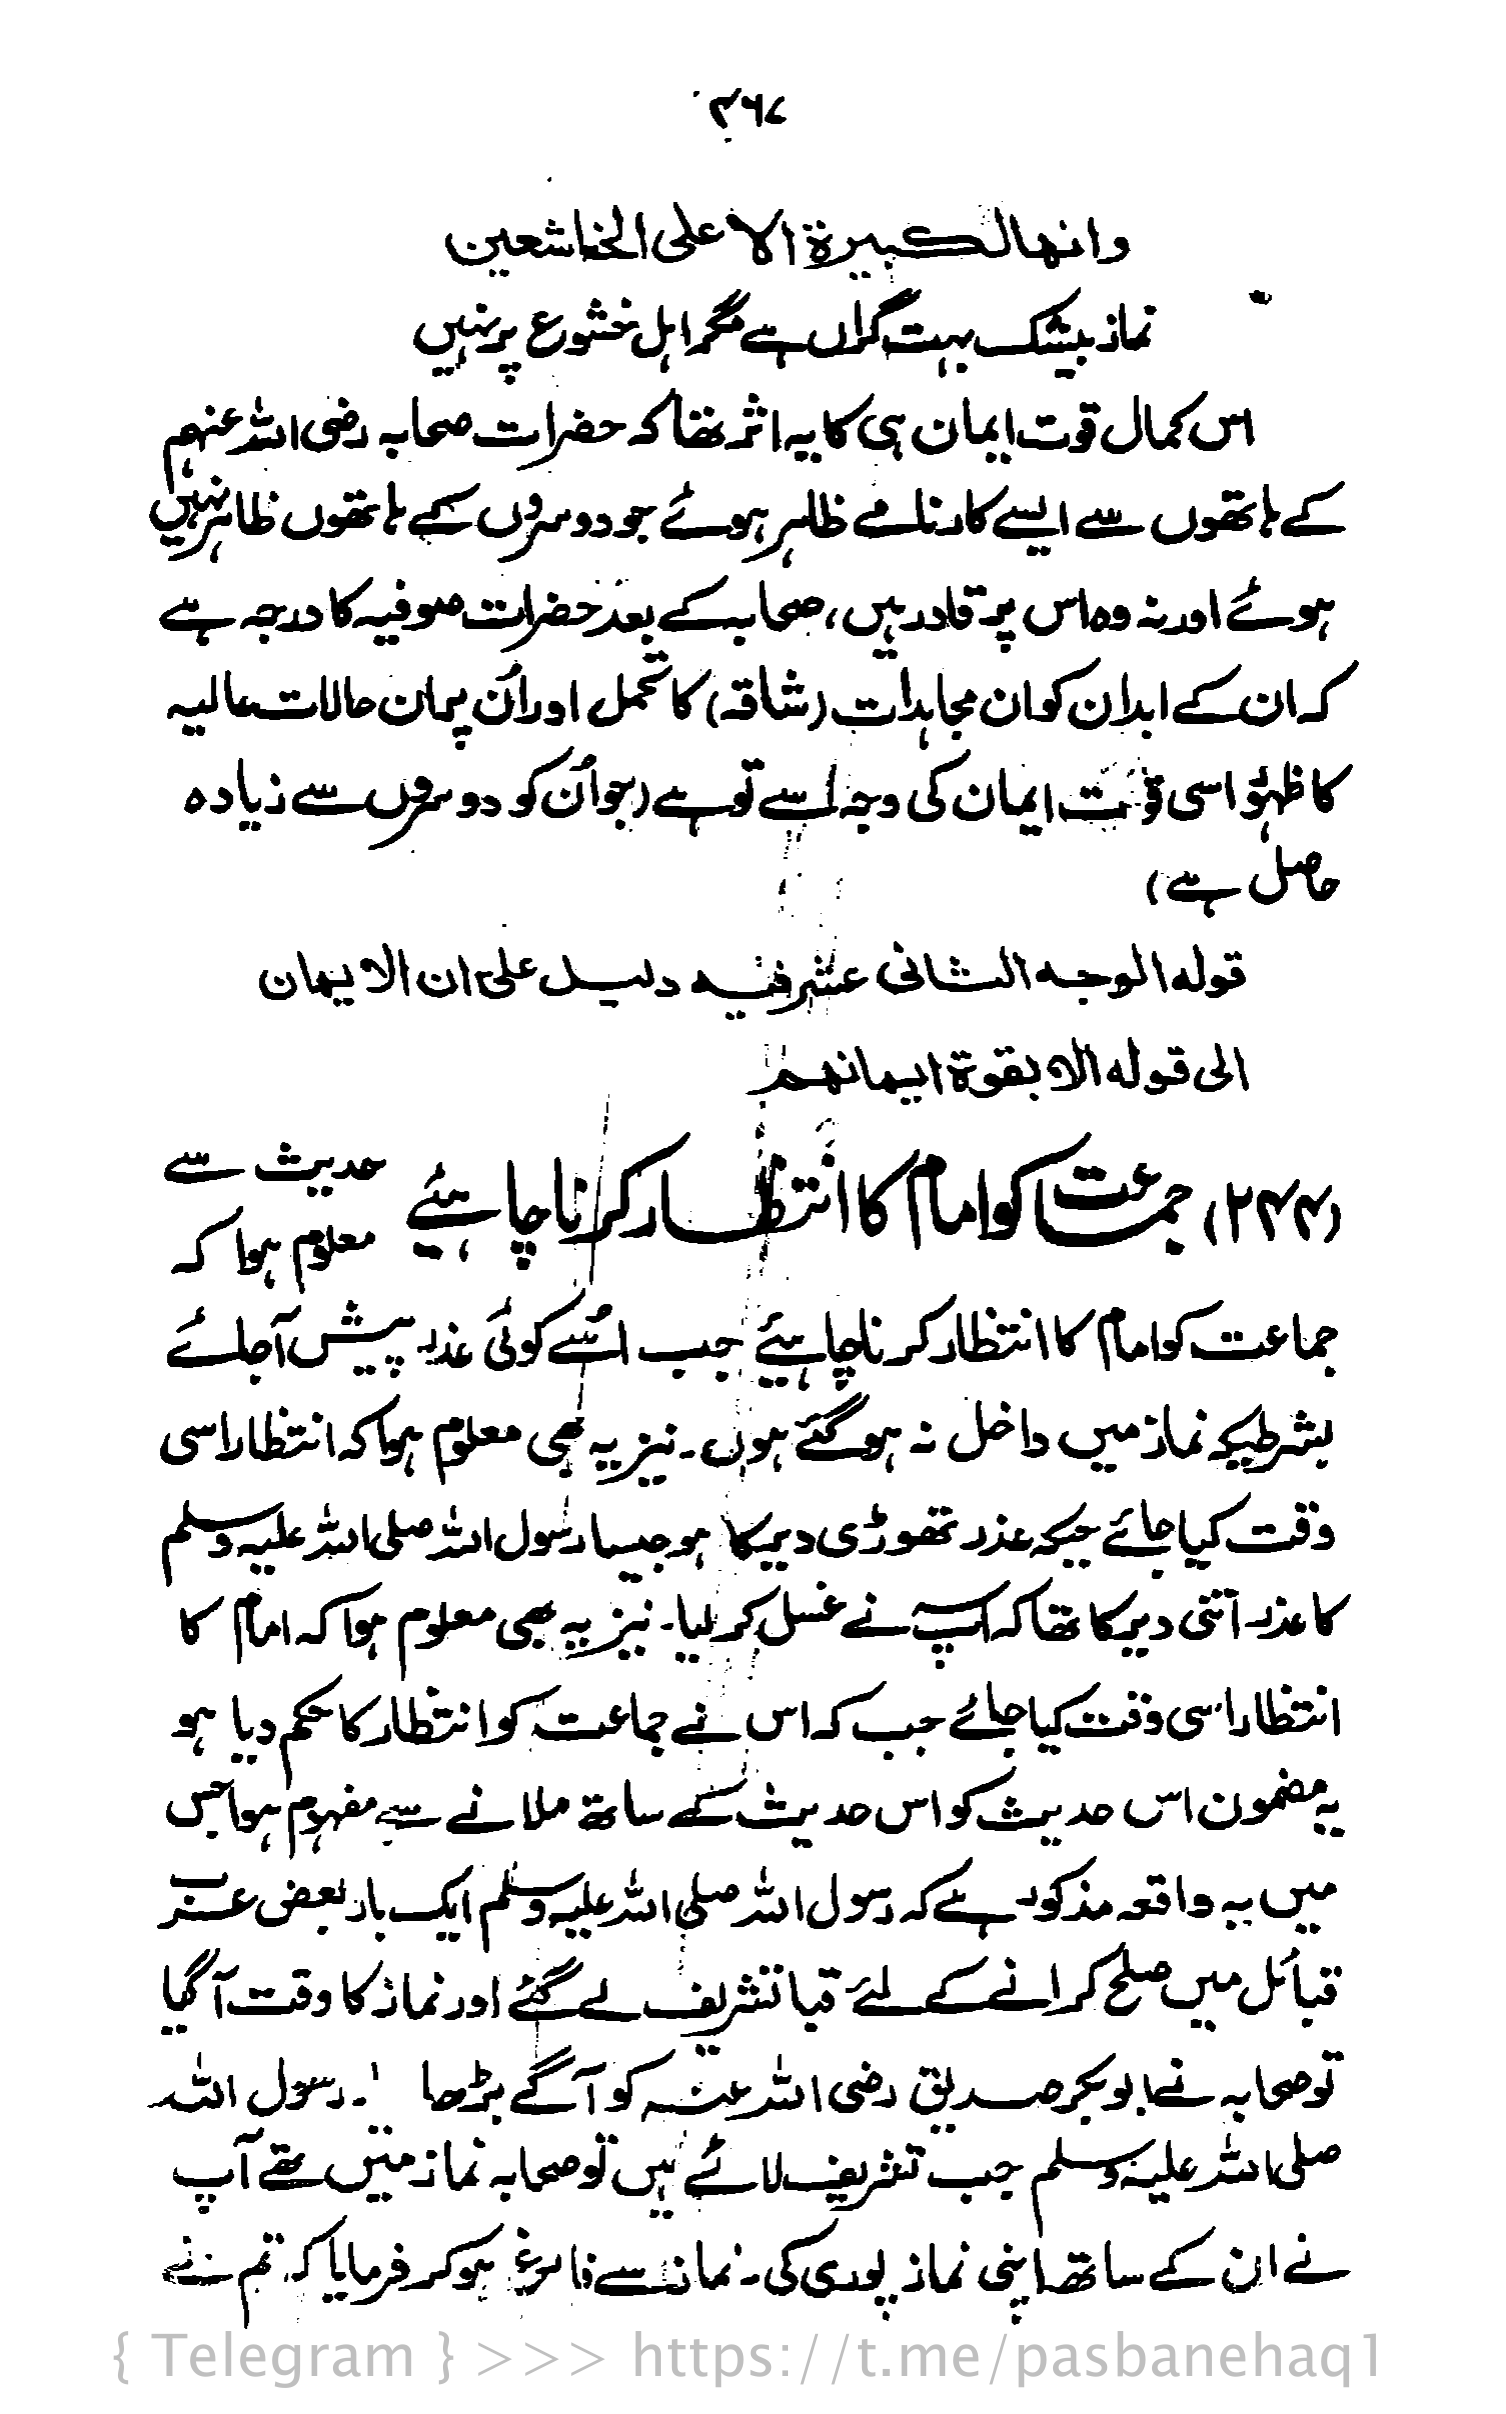 ۴۶۷
وانها لكبيرة الا على الخاشعين
نماز بیشک بہت گراں ہے مگر اہل خشوع پر نہیں
اس کمال قوت ایمان ہی کا یہ اثر تھا کہ حضرات صحابہ رضی اللہ عنہم
کے ہاتھوں سے ایسے کارنامے ظاہر ہوئے جو دوسروں کے ہاتھوں ظاہر نہیں
ہوئے اور نہ وہ اس پر قادر ہیں، صحابہ کے بعد حضرات صوفیہ کا درجہ ہے
کہ ان کے ابدان کو ان مجاہدات (شاقہ) کا تحمل اور اُن پر ان حالات عالیہ
کا ظہور اسی قوت ایمان کی وجہ سے تو ہے (جو اُن کو دوسروں سے زیادہ
حاصل ہے)
قوله الوجه الثانى عشر فيه دليل على ان الايمان
الى قوله الا بقوة ايمانهم
(۲۴۴) جماعت کو امام کا انتظار کرنا چاہئیے حدیث سے
معلوم ہوا کہ
جماعت کو امام کا انتظار کرنا چاہئیے جب اُسے کوئی عذر پیش آجائے
بشرطیکہ نماز میں داخل نہ ہوگئے ہوں۔ نیز یہ بھی معلوم ہوا کہ انتظار اسی
وقت کیا جائے جبکہ عذر تھوڑی دیر کا ہو جیسا رسول اللہ صلی اللہ علیہ وسلم
کا عذر اتنی دیر کا تھا کہ آپ نے غسل کر لیا۔ نیز یہ بھی معلوم ہوا کہ امام کا
انتظار اسی وقت کیا جائے جب کہ اس نے جماعت کو انتظار کا حکم دیا ہو
یہ مضمون اس حدیث کو اس حدیث کے ساتھ ملانے سے مفہوم ہوا جس
میں یہ واقعہ مذکور ہے کہ رسول اللہ صلی اللہ علیہ وسلم ایک بار بعض عرب
قبائل میں صلح کرانے کے لئے قبا تشریف لے گئے اور نماز کا وقت آگیا
تو صحابہ نے ابو بکر صدیق رضی اللہ عنہ کو آگے بڑھا ۔ رسول اللہ
صلی اللہ علیہ وسلم جب تشریف لائے ہیں تو صحابہ نماز میں تھے آپ
نے ان کے ساتھ اپنی نماز پوری کی۔ نماز سے فارغ ہو کر فرمایا کہ تم نے
{ Telegram } >>> https://t.me/pasbanehaq1